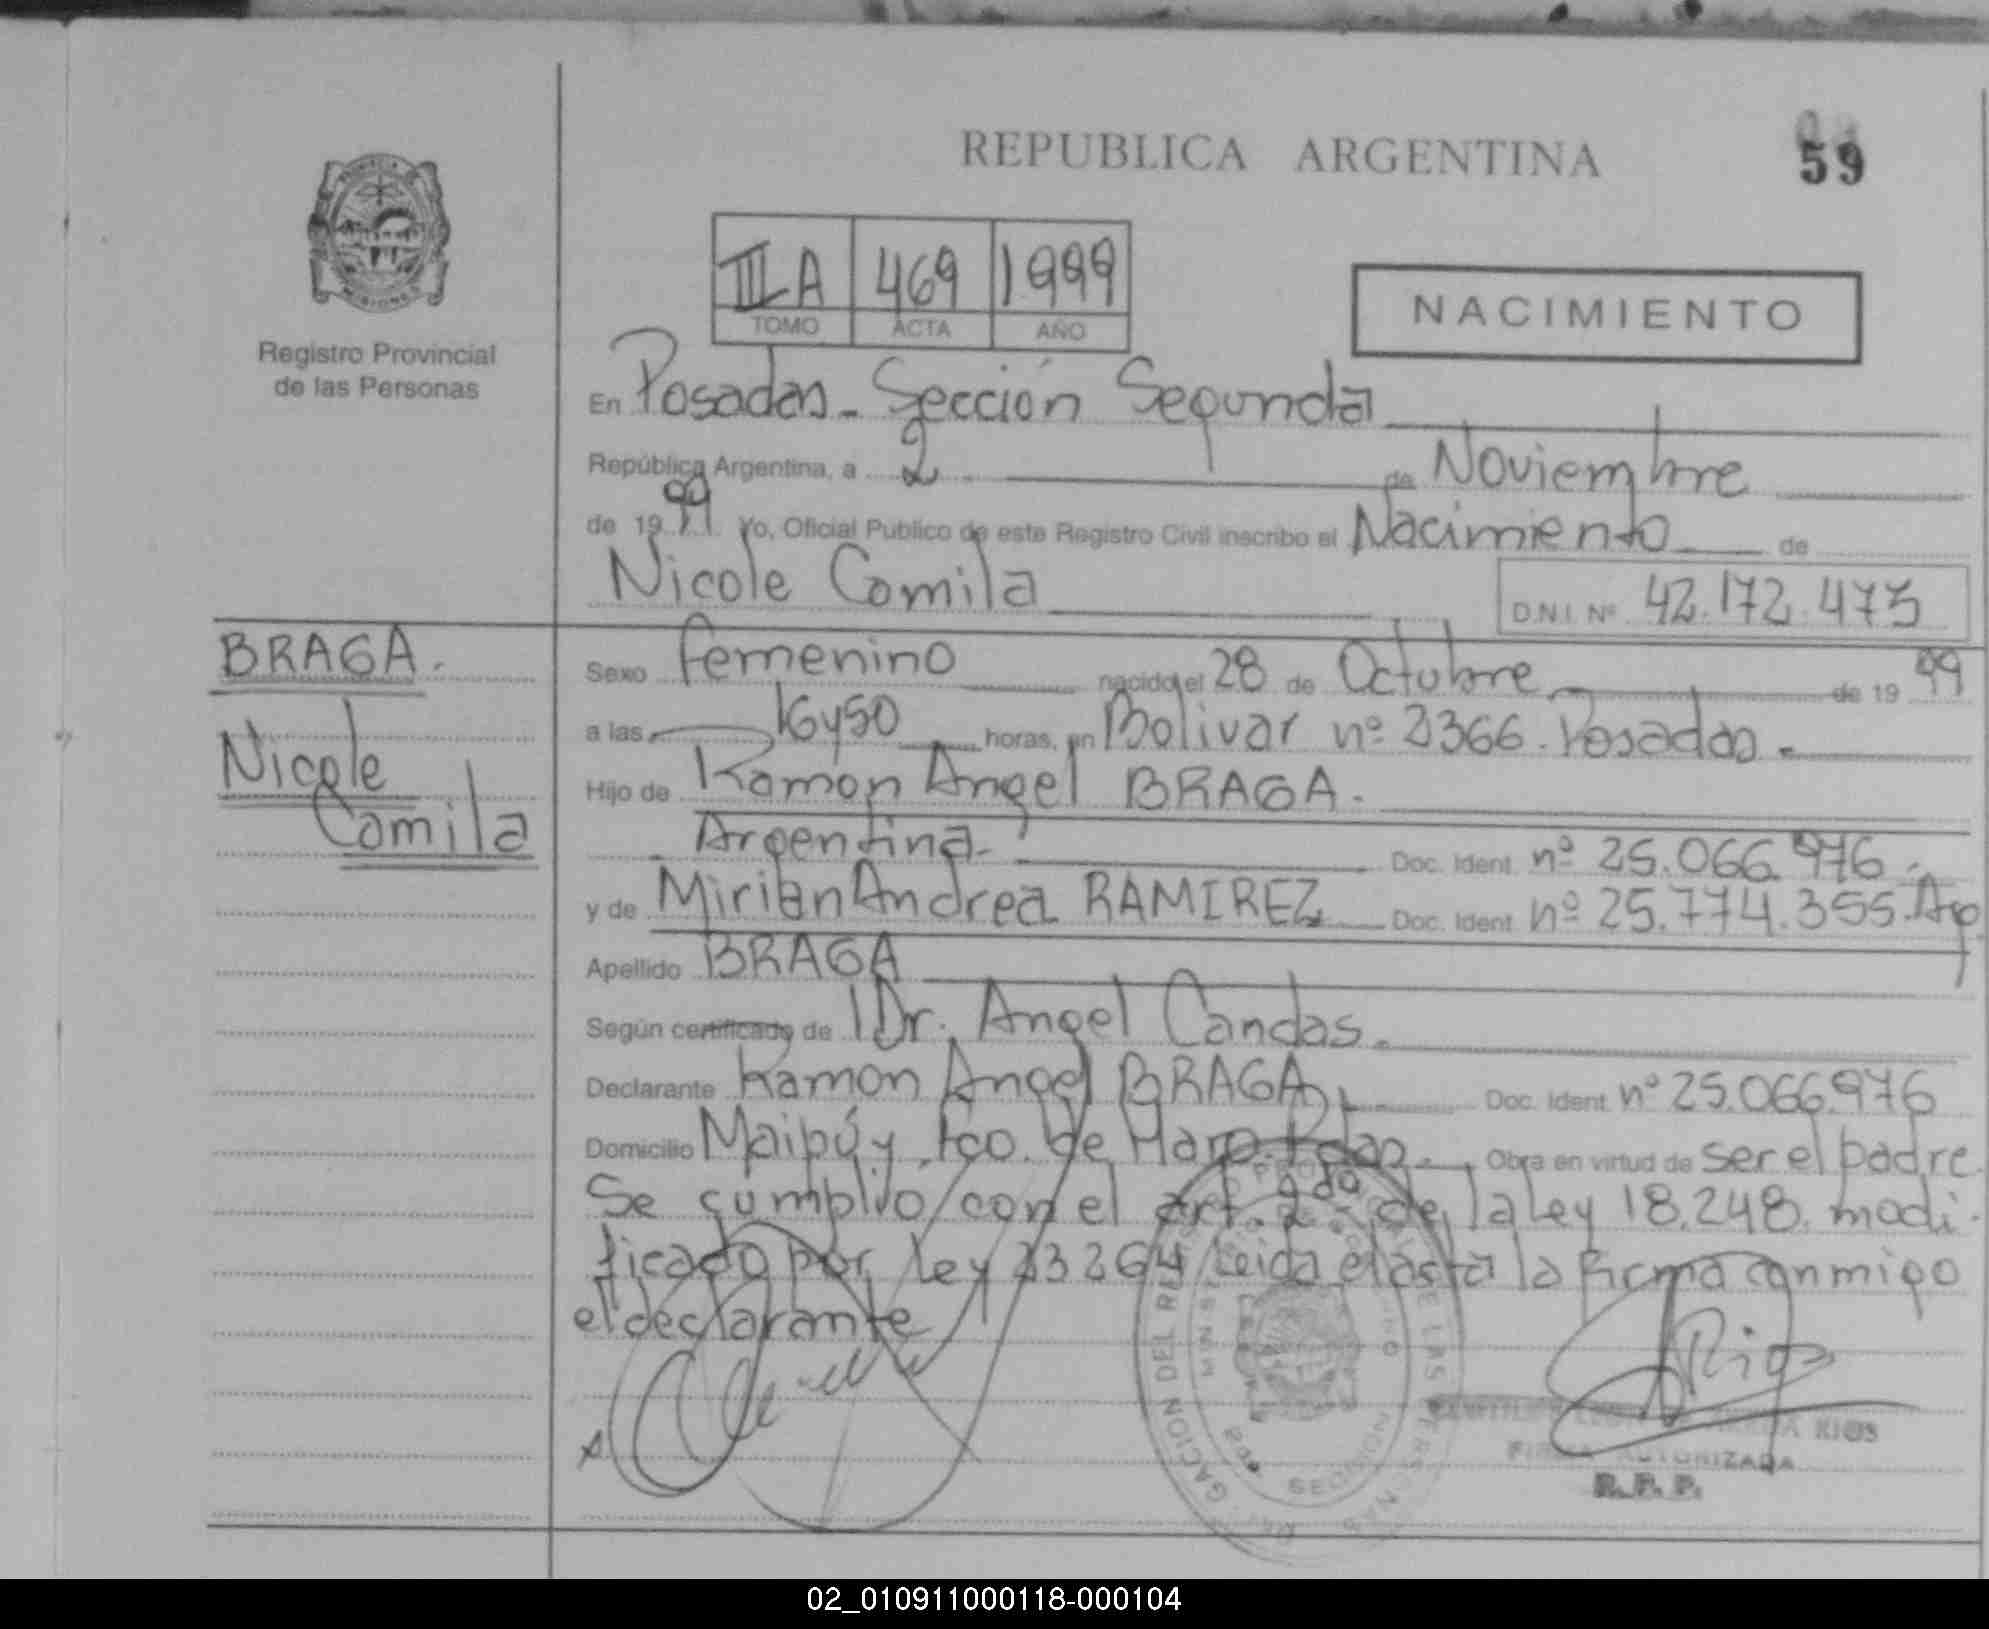 REPUBLICA ARGENTINA
59
Registro Provincial
de las Personas
III A 469 1999
TOMO ACTA AÑO
NACIMIENTO
En Posadas - Sección Segunda
República Argentina, a 2 de Noviembre
de 1999 Yo, Oficial Público de este Registro Civil inscribo el Nacimiento de
Nicole Camila D.N.I. Nº 42.172.473
BRAGA.
Nicole
Camila
Sexo femenino nacido el 28 de Octubre de 1999
a las 16y50 horas, en Bolivar nº 2366. Posadas.
Hijo de Ramon Angel BRAGA.
Argentina- Doc. Ident. nº 25.066.976.
y de Mirian Andrea RAMIREZ Doc. Ident. nº 25.774.355. Arg
Apellido BRAGA
Según certificado de Dr. Angel Candas.
Declarante Ramon Angel BRAGA Doc. Ident. nº 25.066.976
Domicilio Maipú y Fco. de Haro. Pdas. Obra en virtud de ser el padre.
Se cumplio con el art. 2do de la ley 18.248. modi-
ficado por ley 23264 Leida el asta la firma conmigo
el declarante
Rios
RIOS
FIRMA AUTORIZADA
R.P.P.
02_010911000118-000104